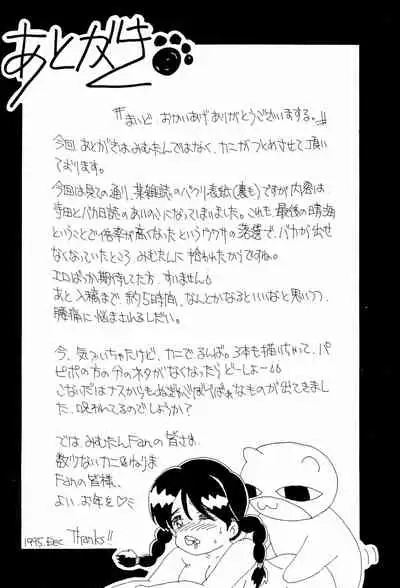 あとがき
〃まいど おかいあげありがとうございまする。〃
今回、あとがきはみむたんではなく、カニがつとめさせて頂い
ております。
今回は見ての通り、某雑誌のパクリ表紙(裏も)ですが内容は
寺田とバカ日誌のあいのこになってしまいました。これも、最後の晴海
ということで倍率が高くなったというウワサの落選で、バカが出せ
なくなっていたところ みむたんに拾われたからですね。
エロばっか期待してた方、すいません
あと入稿まで約5時間、なんとかなるといいなと思いつつ、
腰痛に悩まされるしだい。
今、気づいちゃたけど、カニでるんば。3本も描いちゃって、パ
ピポの方の分のネタがなくなったら どーしよー
こないだはナスからも
なものが出てきまし
た、呪われてるのでしょうか?
では みむたんFanの皆さま、
数少ないカニ&ねりま
Fanの皆様、
よい、お年を♡
1995. Dec Thanks!!